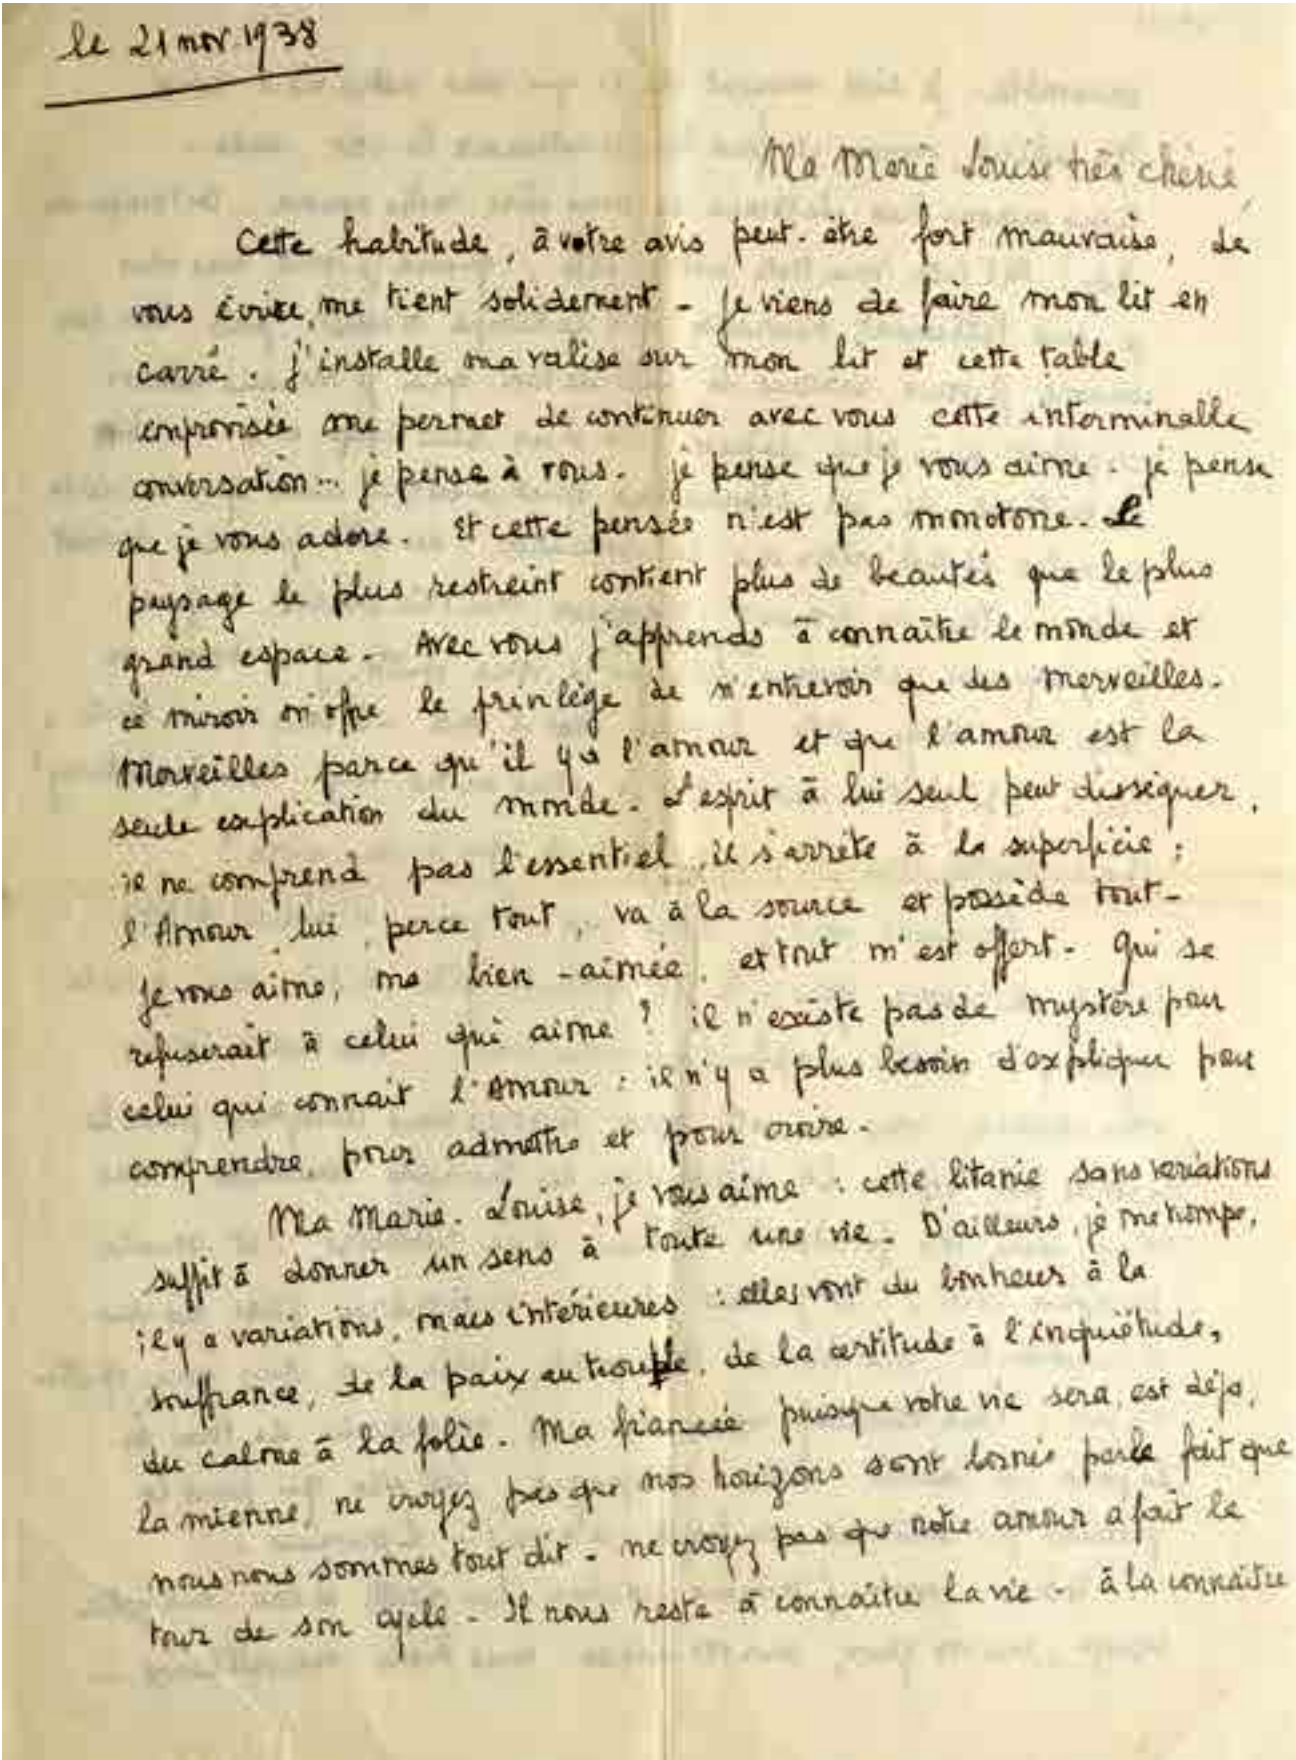 le 21 nov. 1938
Ma Marie Louise très chérie,
Cette habitude, à votre avis peut-être fort mauvaise, de
vous écrire, me tient solidement - je viens de faire mon lit en
carré. j'installe ma valise sur mon lit et cette table
improvisée me permet de continuer avec vous cette interminable
conversation... je pense à vous. je pense que je vous aime. je pense
que je vous adore. Et cette pensée n'est pas monotone. Le
paysage le plus restreint contient plus de beautés que le plus
grand espace. Avec vous j'apprends à connaître le monde et
ce miroir m'offre le privilège de n'entrevoir que des merveilles.
Merveilles parce qu'il y a l'amour et que l'amour est la
seule explication du monde. L'esprit à lui seul peut disséquer,
il ne comprend pas l'essentiel, il s'arrête à la superficie ;
l'Amour, lui, perce tout, va à la source et possède tout -
Je vous aime, ma bien-aimée, et tout m'est offert. Qui se
refuserait à celui qui aime ? il n'existe pas de mystère pour
celui qui connait l'Amour : il n'y a plus besoin d'expliquer pour
comprendre, pour admettre et pour croire.
Ma Marie-Louise, je vous aime : cette litanie sans variations
suffit à donner un sens à toute une vie. D'ailleurs, je me trompe,
il y a variations, mais intérieures : elles vont du bonheur à la
souffrance, de la paix au trouble, de la certitude à l'inquiétude,
du calme à la folie. Ma fiancée puisque votre vie sera, est déjà,
la mienne, ne croyez pas que nos horizons sont bornés par le fait que
nous nous sommes tout dit - ne croyez pas que notre amour a fait le
tour de son cycle - Il nous reste à connaître la vie - à la connaître